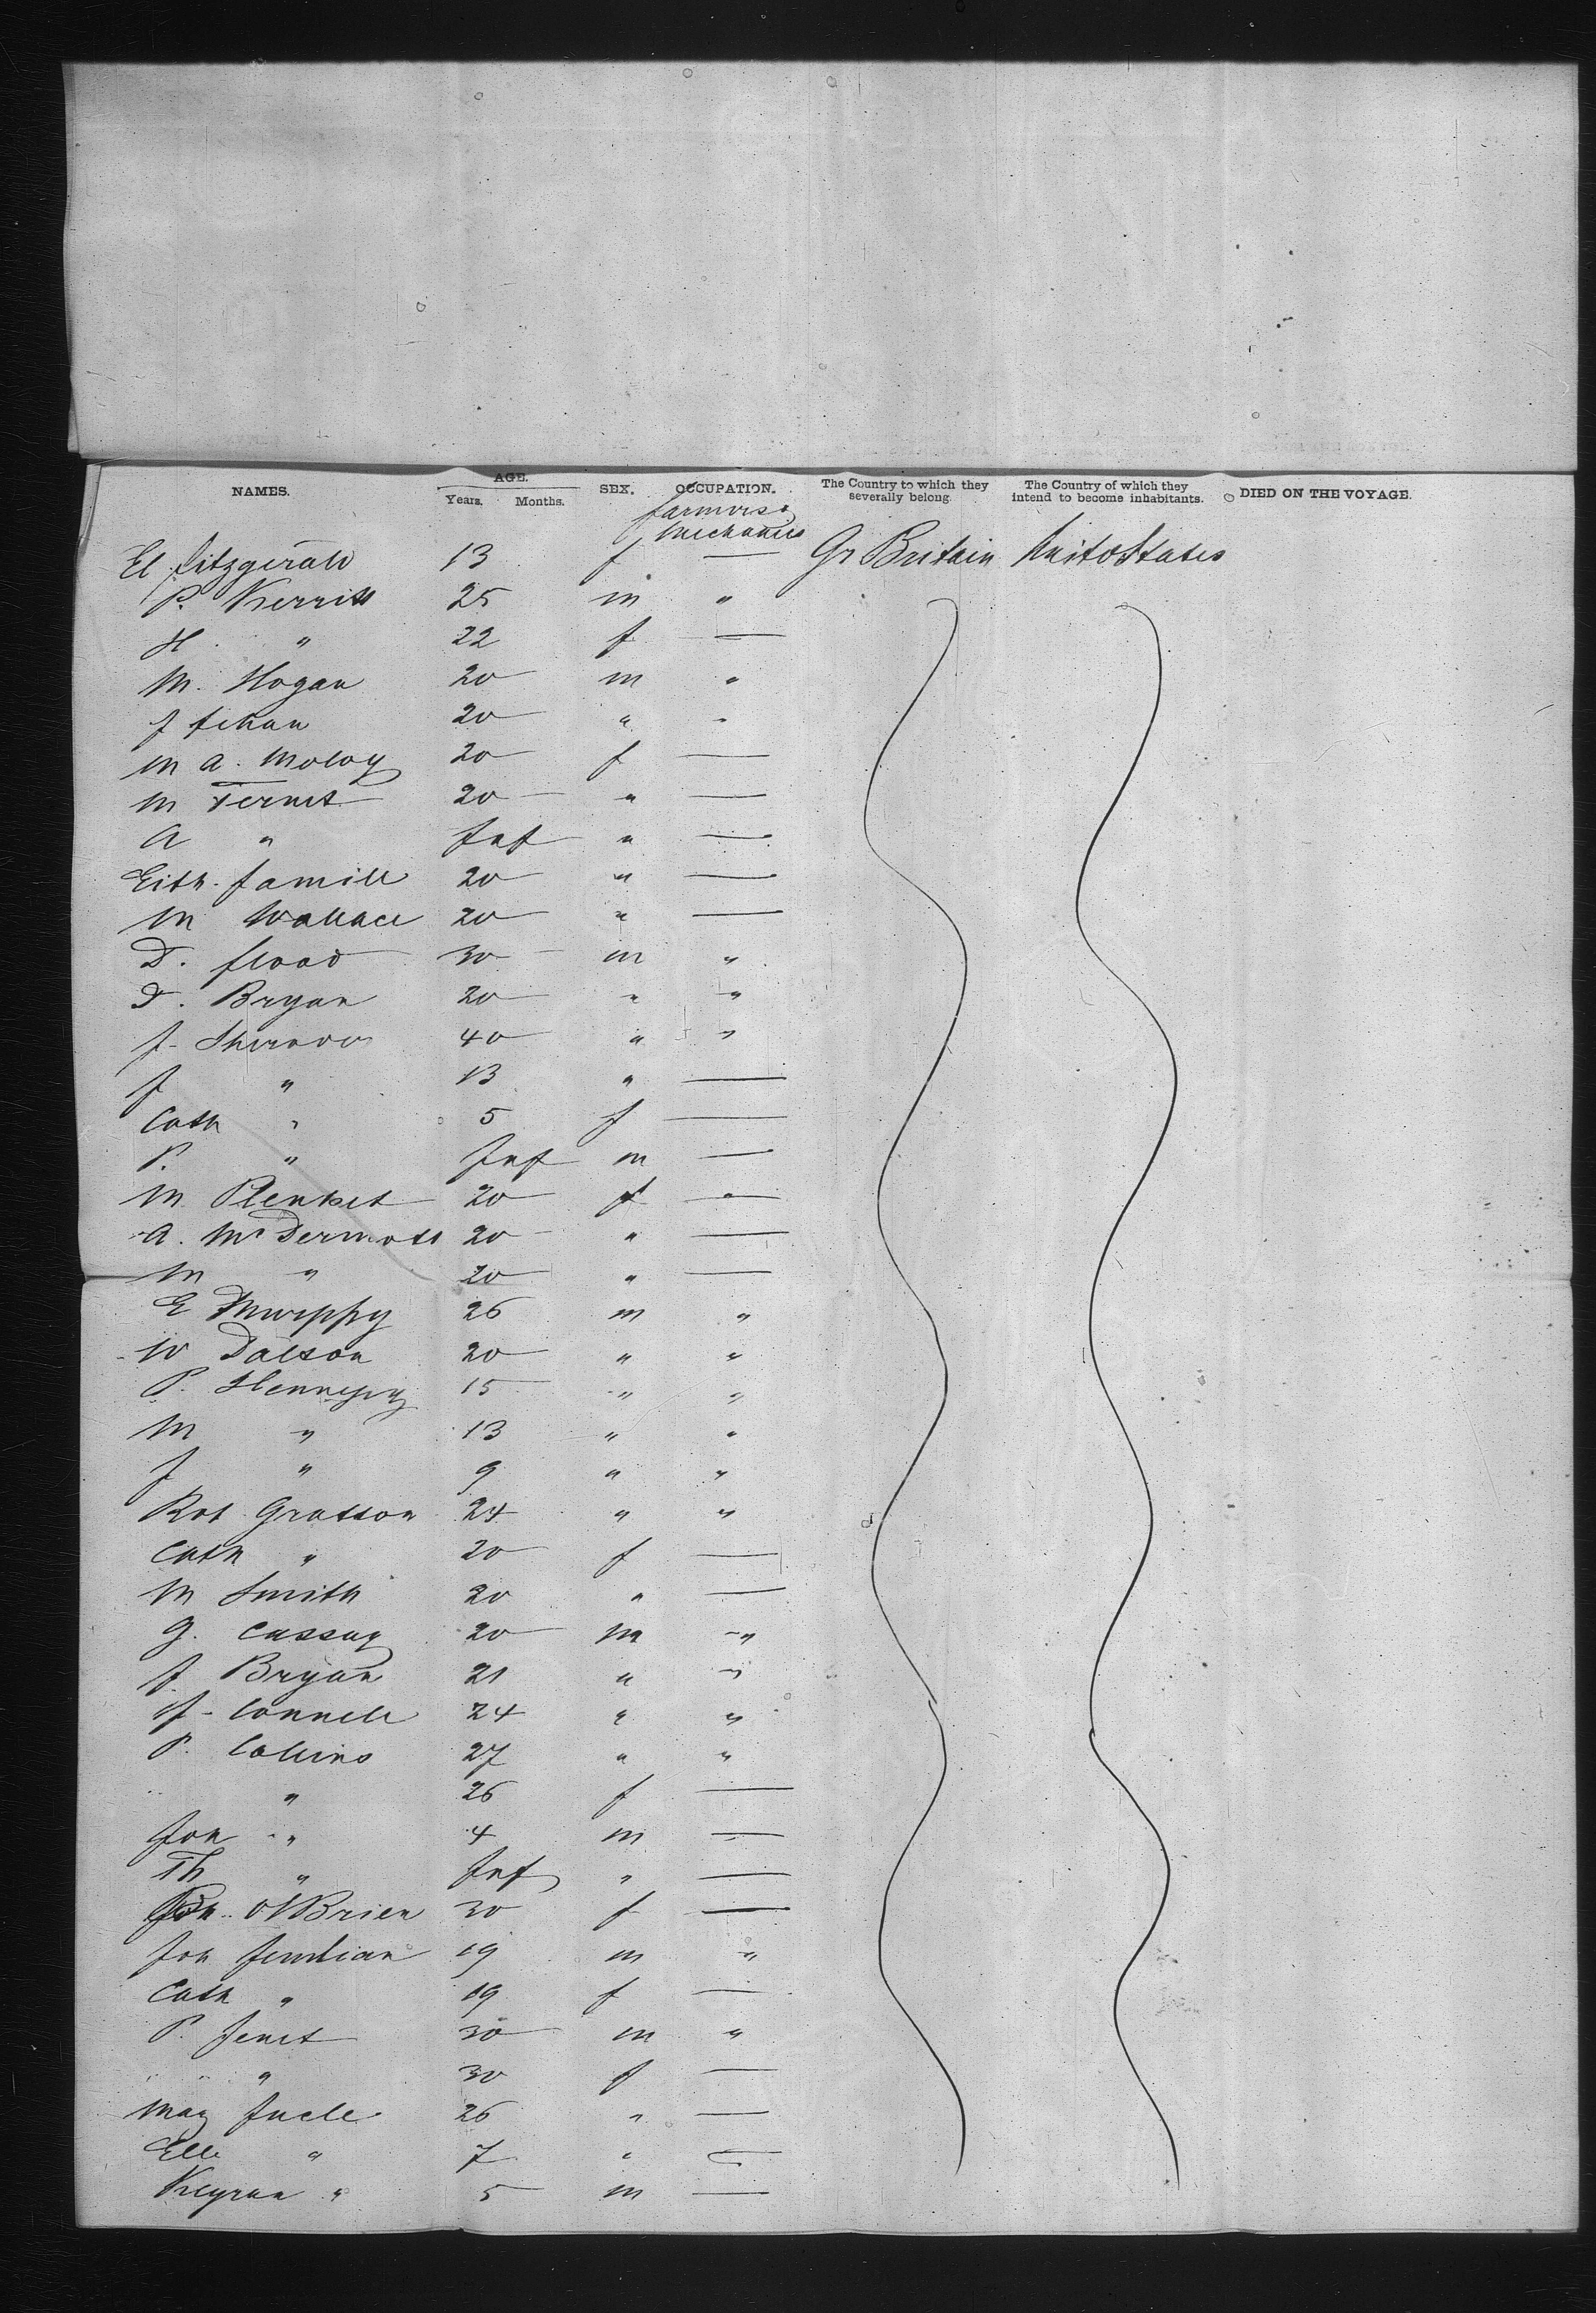 NAMES. AGE. Years. Months. SEX. OCCUPATION. The Country to which they severally belong. The Country of which they intend to become inhabitants. DIED ON THE VOYAGE.
farmers &
mechanics
El fitzgerald 13 f — Gr Britain Unito States
P. Kerritt 25 m "
H. " 22 f —
M. Hogan 20 m "
J fehan 20 " "
M A. Moloy 20 f —
M Fernet 20 " —
A " Inf " —
Eith. famill 20 " —
M Wallace 20 " —
D. flood 30 m "
D. Bryan 20 " "
J. 40 " "
J " 13 " —
Cath " 5 f —
P. " Inf m —
M Plenket 20 f —
A. McDermott 20 " —
M " 20 " —
E Murphy 26 m "
W Dalton 20 " "
P. Hennessy 15 " "
M " 13 " "
J " 9 " "
Rob Gratton 24 " "
Cath " 20 f —
M Smith 20 " —
G. Cassay 20 m "
J. Bryan 21 " "
J. Connell 24 " "
P. Collins 27 " "
" 26 f —
Joh " 4 m —
Th " Inf " —
O'Brien 30 f —
Joh 19 m "
Cath " 19 f —
P. Jenet 30 m "
" 30 f —
May 26 " —
Elle " 7 " —
Keyran " 5 m —